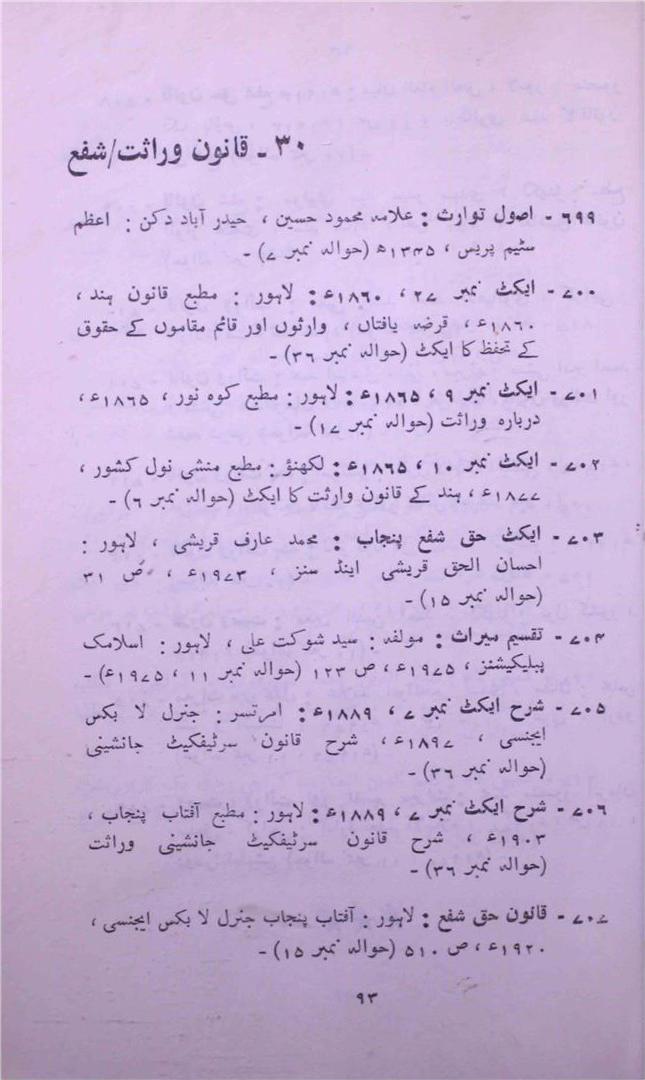 ۳۰ - قانون وراثت/شفع
۶۹۹ - اصول توارث : علامہ محمود حسین ، حیدر آباد دکن : اعظم
سٹیم پریس ، ۱۳۴۵ھ (حوالہ نمبر ۷) -
۷۰۰ - ایکٹ نمبر ۲۷ ، ۱۸۶۰ء : لاہور : مطبع قانون ہند ،
۱۸۶۰ء ، قرضہ یافتاں ، وارثوں اور قائم مقاموں کے حقوق
کے تحفظ کا ایکٹ (حوالہ نمبر ۳۶) -
۷۰۱ - ایکٹ نمبر ۹ ، ۱۸۶۵ء : لاہور : مطبع کوہ نور ، ۱۸۶۵ء ،
دربارہ وراثت (حوالہ نمبر ۱۷) -
۷۰۲ - ایکٹ نمبر ۱۰ ، ۱۸۶۵ء : لکھنؤ : مطبع منشی نول کشور ،
۱۸۷۷ء ، ہند کے قانون وارثت کا ایکٹ (حوالہ نمبر ۶) -
۷۰۳ - ایکٹ حق شفع پنجاب : محمد عارف قریشی ، لاہور :
احسان الحق قریشی اینڈ سنز ، ۱۹۷۳ء ، ص ۳۱
(حوالہ نمبر ۱۵) -
۷۰۴ - تقسیم میراث : مولفہ : سید شوکت علی ، لاہور : اسلامک
پبلیکیشنز ، ۱۹۷۵ء ، ص ۱۲۳ (حوالہ نمبر ۱۱ ، ۱۹۷۵ء) -
۷۰۵ - شرح ایکٹ نمبر ۷ ، ۱۸۸۹ء : امرتسر : جنرل لا بکس
ایجنسی ، ۱۸۹۷ء ، شرح قانون سرٹیفکیٹ جانشینی
(حوالہ نمبر ۳۶) -
۷۰۶ - شرح ایکٹ نمبر ۷ ، ۱۸۸۹ء : لاہور : مطبع آفتاب پنجاب ،
۱۹۰۳ء ، شرح قانون سرٹیفکیٹ جانشینی وراثت
(حوالہ نمبر ۳۶) -
۷۰۷ - قانون حق شفع : لاہور : آفتاب پنجاب جنرل لا بکس ایجنسی ،
۱۹۲۰ء ، ص ۵۱۰ (حوالہ نمبر ۱۵) -
۹۳